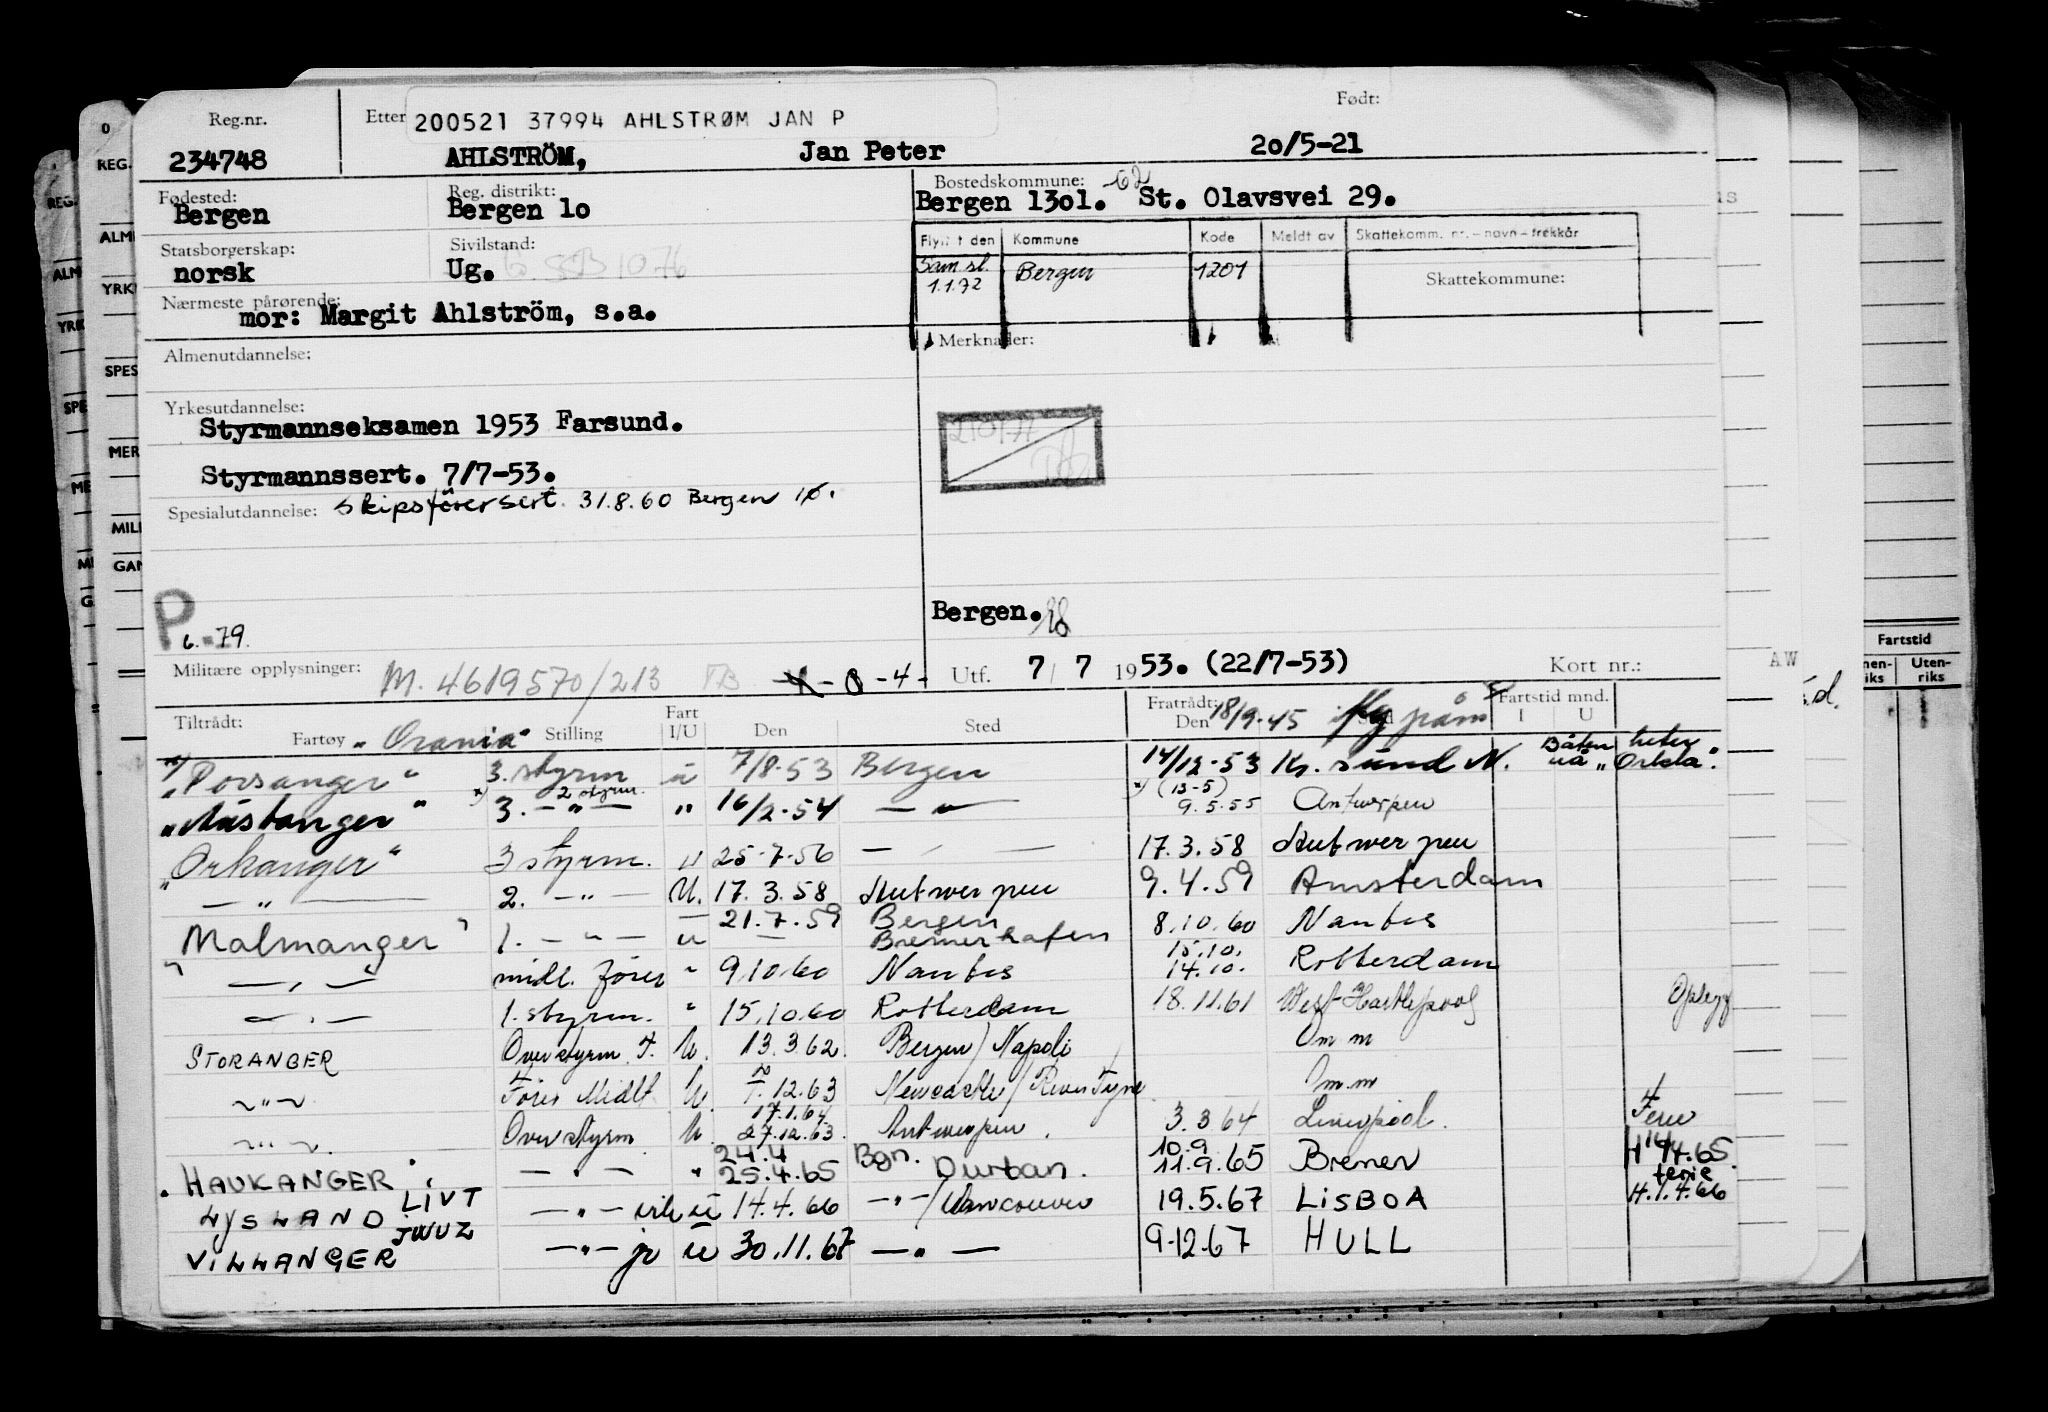 Reg.nr. Etter 200521 37994 AHLSTRØM JAN P Født:
234748 AHLSTRÖM, Jan Peter 20/5-21
Fødested: Reg. distrikt: Bostedskommune: -62
Bergen Bergen 10 Bergen 1301. St. Olavsvei 29.
Statsborgerskap: Sivilstand: Flytt t den Kommune Kode Meldt av Skattekomm. nr. - navn - trekkår
norsk Ug. Sam sl. 1.1.72 Bergen 1201 Skattekommune:
Nærmeste pårørende:
mor: Margit Ahlström, s.a.
Almenutdannelse: Merknader:
Yrkesutdannelse:
Styrmannseksamen 1953 Farsund.
Styrmannssert. 7/7-53.
Spesialutdannelse: Skipsførersert. 31.8.60 Bergen
P 6.-79. Bergen.
Militære opplysninger: M. 4619570/213 - 0 - 4 - Utf. 7 / 7 1953. (22/7-53) Kort nr.:
Tiltrådt: Fratrådt: 18/9-45 Fartstid mnd.
Fartøy "Orania" Stilling Fart I/U Den Sted Den I U
"Porsanger" 3. styrm u 7/8-53 Bergen 14/12-53 Kr. sund N. Båten heter nå "Orkla".
"Austanger" 3. - " - 2 styrm. " 16/2-54 - " - (13-5) 9.5.55 Antwerpen
"Orkanger" 3 styrm. u 25-7-56 - " - 17.3.58 Antwerpen
- " - 2. - " - U. 17.3.58 Antwerpen 9.4.59 Amsterdam
"Malmanger" 1. - " - u 21.7.59 Bergen Bremerhafen 8.10.60 Nantes
- " - midl. fører " 9.10.60 Nantes 15.10. 14.10. Rotterdam
- " - 1. styrm. " 15.10.60 Rotterdam 18.11.61 West Hartlepool Opplegg
STORANGER Overstyrm. F. U. 13.3.62. Bergen / Napoli Om m
~ " ~ Fører Midlt U. 12.63 Newcastle / River Tyne Om m
~ " ~ Overstyrm U. 17.1.64 27.12.63. Antwerpen 3.3 64 Liverpool. Ferie
HAVKANGER - " - " 24.4 25.4.65 Bgn. Durban. 10.9 11.9.65 Bremen H 14/4.65.
LYSLAND LIVT - " - u 14.4.66 - " - / Vancouver 19.5.67 LISBOA ferie H.1.4.66
VILLANGER JWUZ - " - u 30.11.67 - " - 9-12.67 HULL
REG.
ALM
YRK
SPES
MER
MIL
GAN
Fartstid
Innen-riks Uten-riks
AW